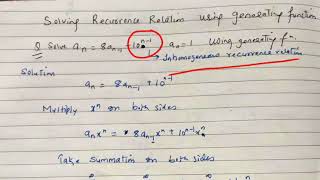 Solving Recurrence Relation using generating function
Q Solve aₙ = 8aₙ₋₁ + 10ⁿ⁻¹, a₀ = 1 Using generating fⁿ.
→ Inhomogeneous recurrence relation
Solution
aₙ = 8aₙ₋₁ + 10ⁿ⁻¹
Multiply xⁿ on both sides
aₙxⁿ = 8aₙ₋₁xⁿ + 10ⁿ⁻¹xⁿ
Take summation on both sides